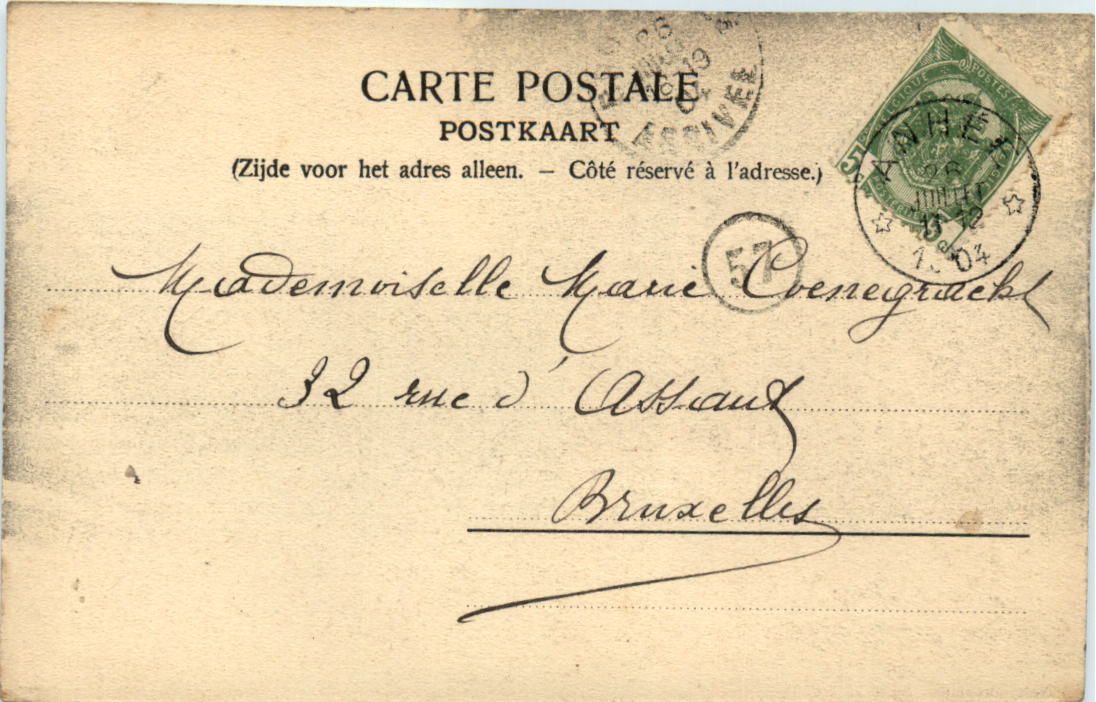 CARTE POSTALE
POSTKAART
(Zijde voor het adres alleen. — Côté réservé à l'adresse.)
ANHÉE
26
JUILLET
11-12
04
5
57
Mademoiselle Marie Coenegracht
32 rue d'Assaut
Bruxelles